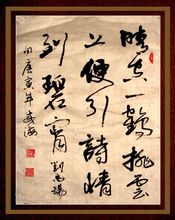 晴空一鹤排云
上便引诗情
到碧霄 刘禹锡
庚寅年